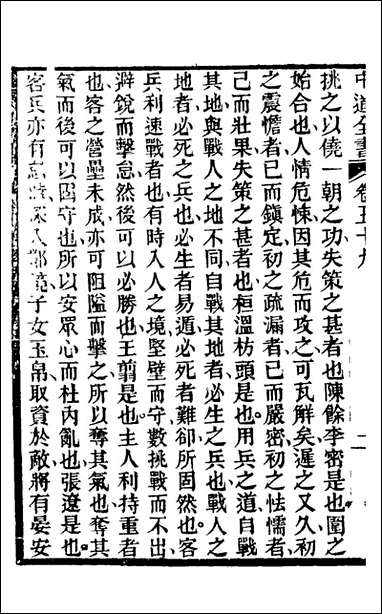 中道全書　卷五十九　二
挑之以僥一朝之功失策之甚者也陳餘李密是也圍之
始合也人情危悚因其危而攻之可瓦解矣遲之又久初
之震懾者已而鎮定初之疏漏者已而嚴密初之怯懦者
己而壯果失策之甚者也桓溫枋頭是也用兵之道自戰
其地與戰人之地不同自戰其地者必生之兵也戰人之
地者必死之兵也必生者易遁必死者難卻所固然也客
兵利速戰者也有時入人之境堅壁而守數挑戰而不出
避銳而擊怠然後可以必勝也王翦是也主人利持重者
也客之營壘未成亦可阻隘而擊之所以奪其氣也奪其
氣而後可以固守也所以安眾心而杜內亂也張遼是也
客兵亦有怠時深入鄰境子女玉帛取資於敵將有晏安